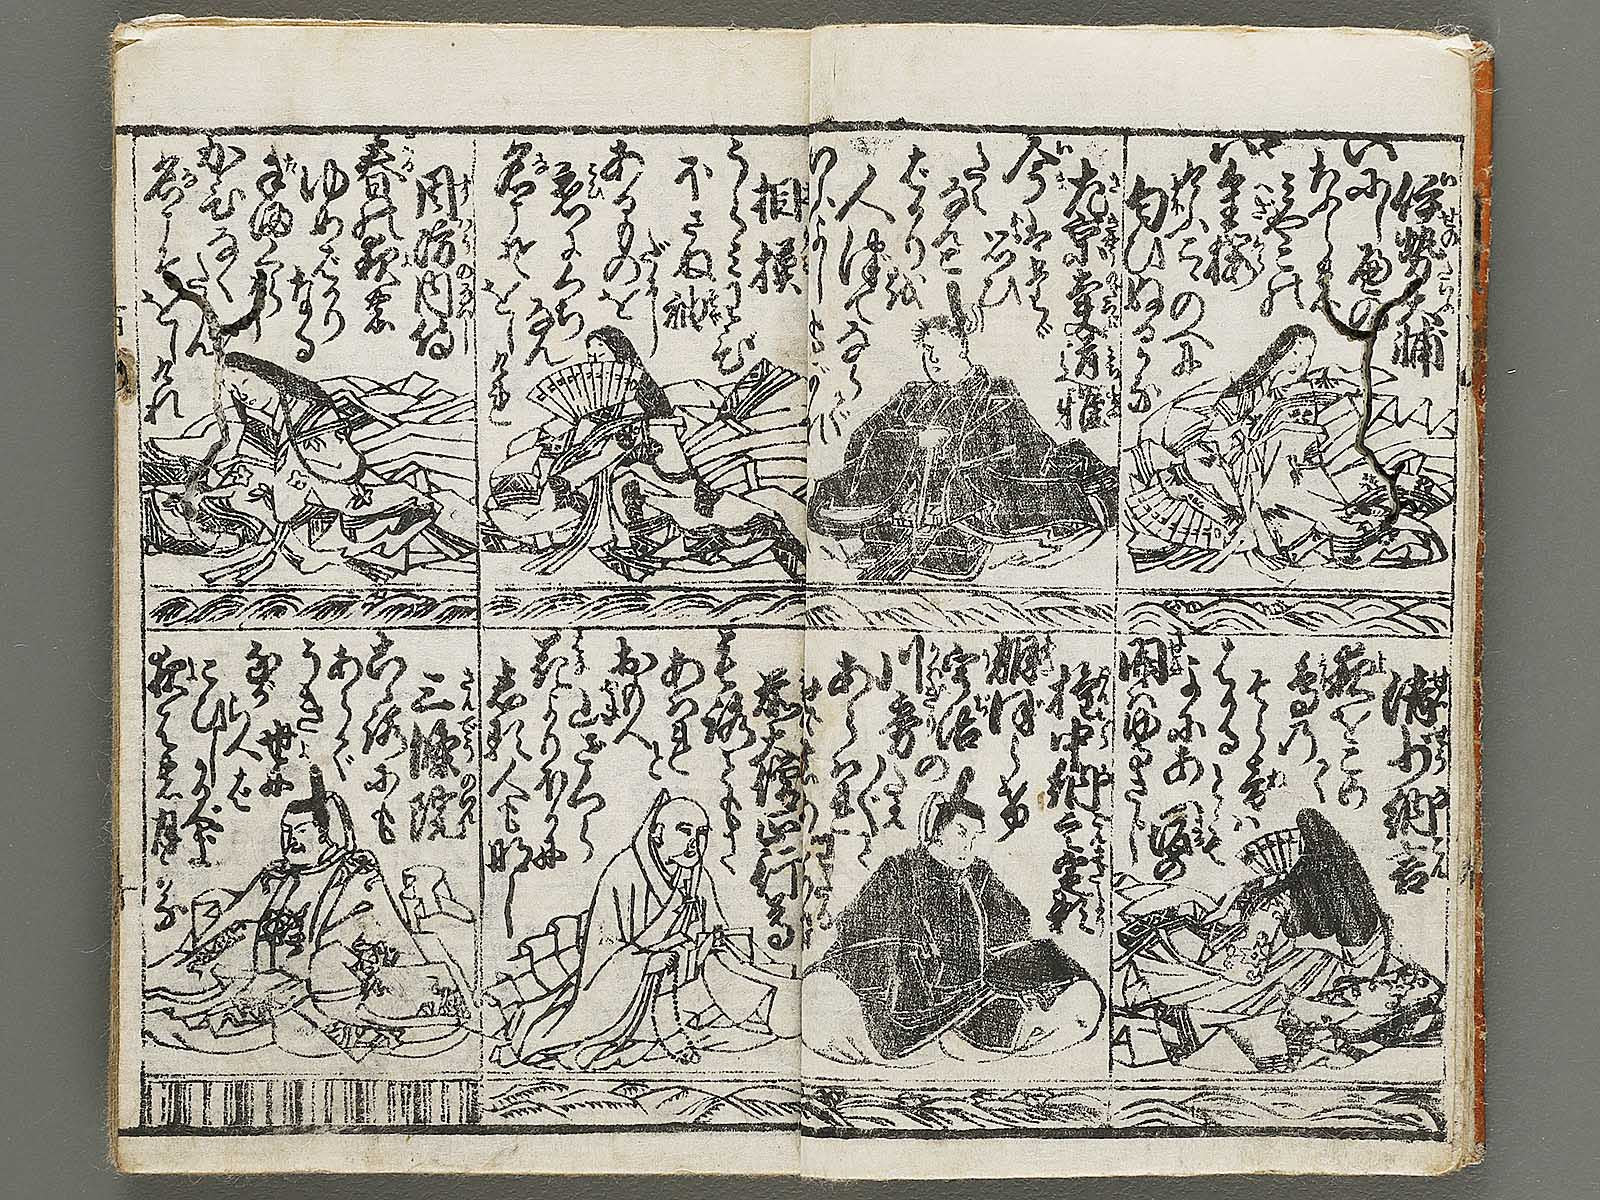 伊勢大輔
いにし辺の
ならの
みやこの
八重桜
けふこゝのへに
匂ひぬるかな
清少納言
夜をこめて
鳥乃
そら音ハ
はかるとも
よにあふ坂の
関ハゆるさし
左京大夫道雅
今ハたゞ
思ひたえ
なんと
はかり越
人津てならて
いふよしもがな
権中納言定頼
朝ぼらけ
宇治の
川霧たえ〴〵に
あらはれ
相模
うらミわび
ほさぬ袖
だに
あるものを
恋にくち
なん
名こそをしけれ
大僧正行尊
もろともに
あはれと
山ざくら
花より外に
しる人も那し
周防内侍
春の夜の
ゆめばかり
なる
手枕に
かひなく
たゝん
名こそをしけれ
三條院
心にも
あらで
うき世に
こひしかるべき
夜半の月かな